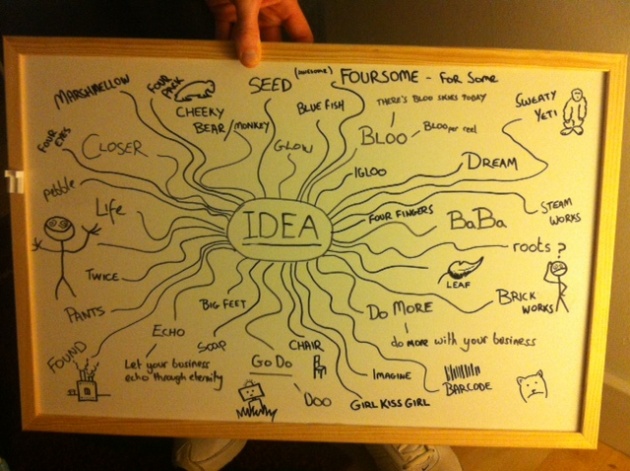 MARSHMELLOW
FOUR
PACK
SEED
(awesome)
FOURSOME - FOR SOME
CHEEKY
BEAR/MONKEY
BLUE FISH
THERE'S BLOO SKIES TODAY
SWEATY
YETI
FOUR
EYES
CLOSER
GLOW
BLOO
BLOOper reel
pebble
IGLOO
DREAM
Life
IDEA
FOUR FINGERS
BaBa
STEAM
WORKS
roots?
TWICE
LEAF
PANTS
BIG FEET
DO MORE
BRICK
WORKS
ECHO
SOAP
CHAIR
do more with your business
FOUND
Let your business
echo through eternity
GO DO
DOO
IMAGINE
BARCODE
GIRL KISS GIRL